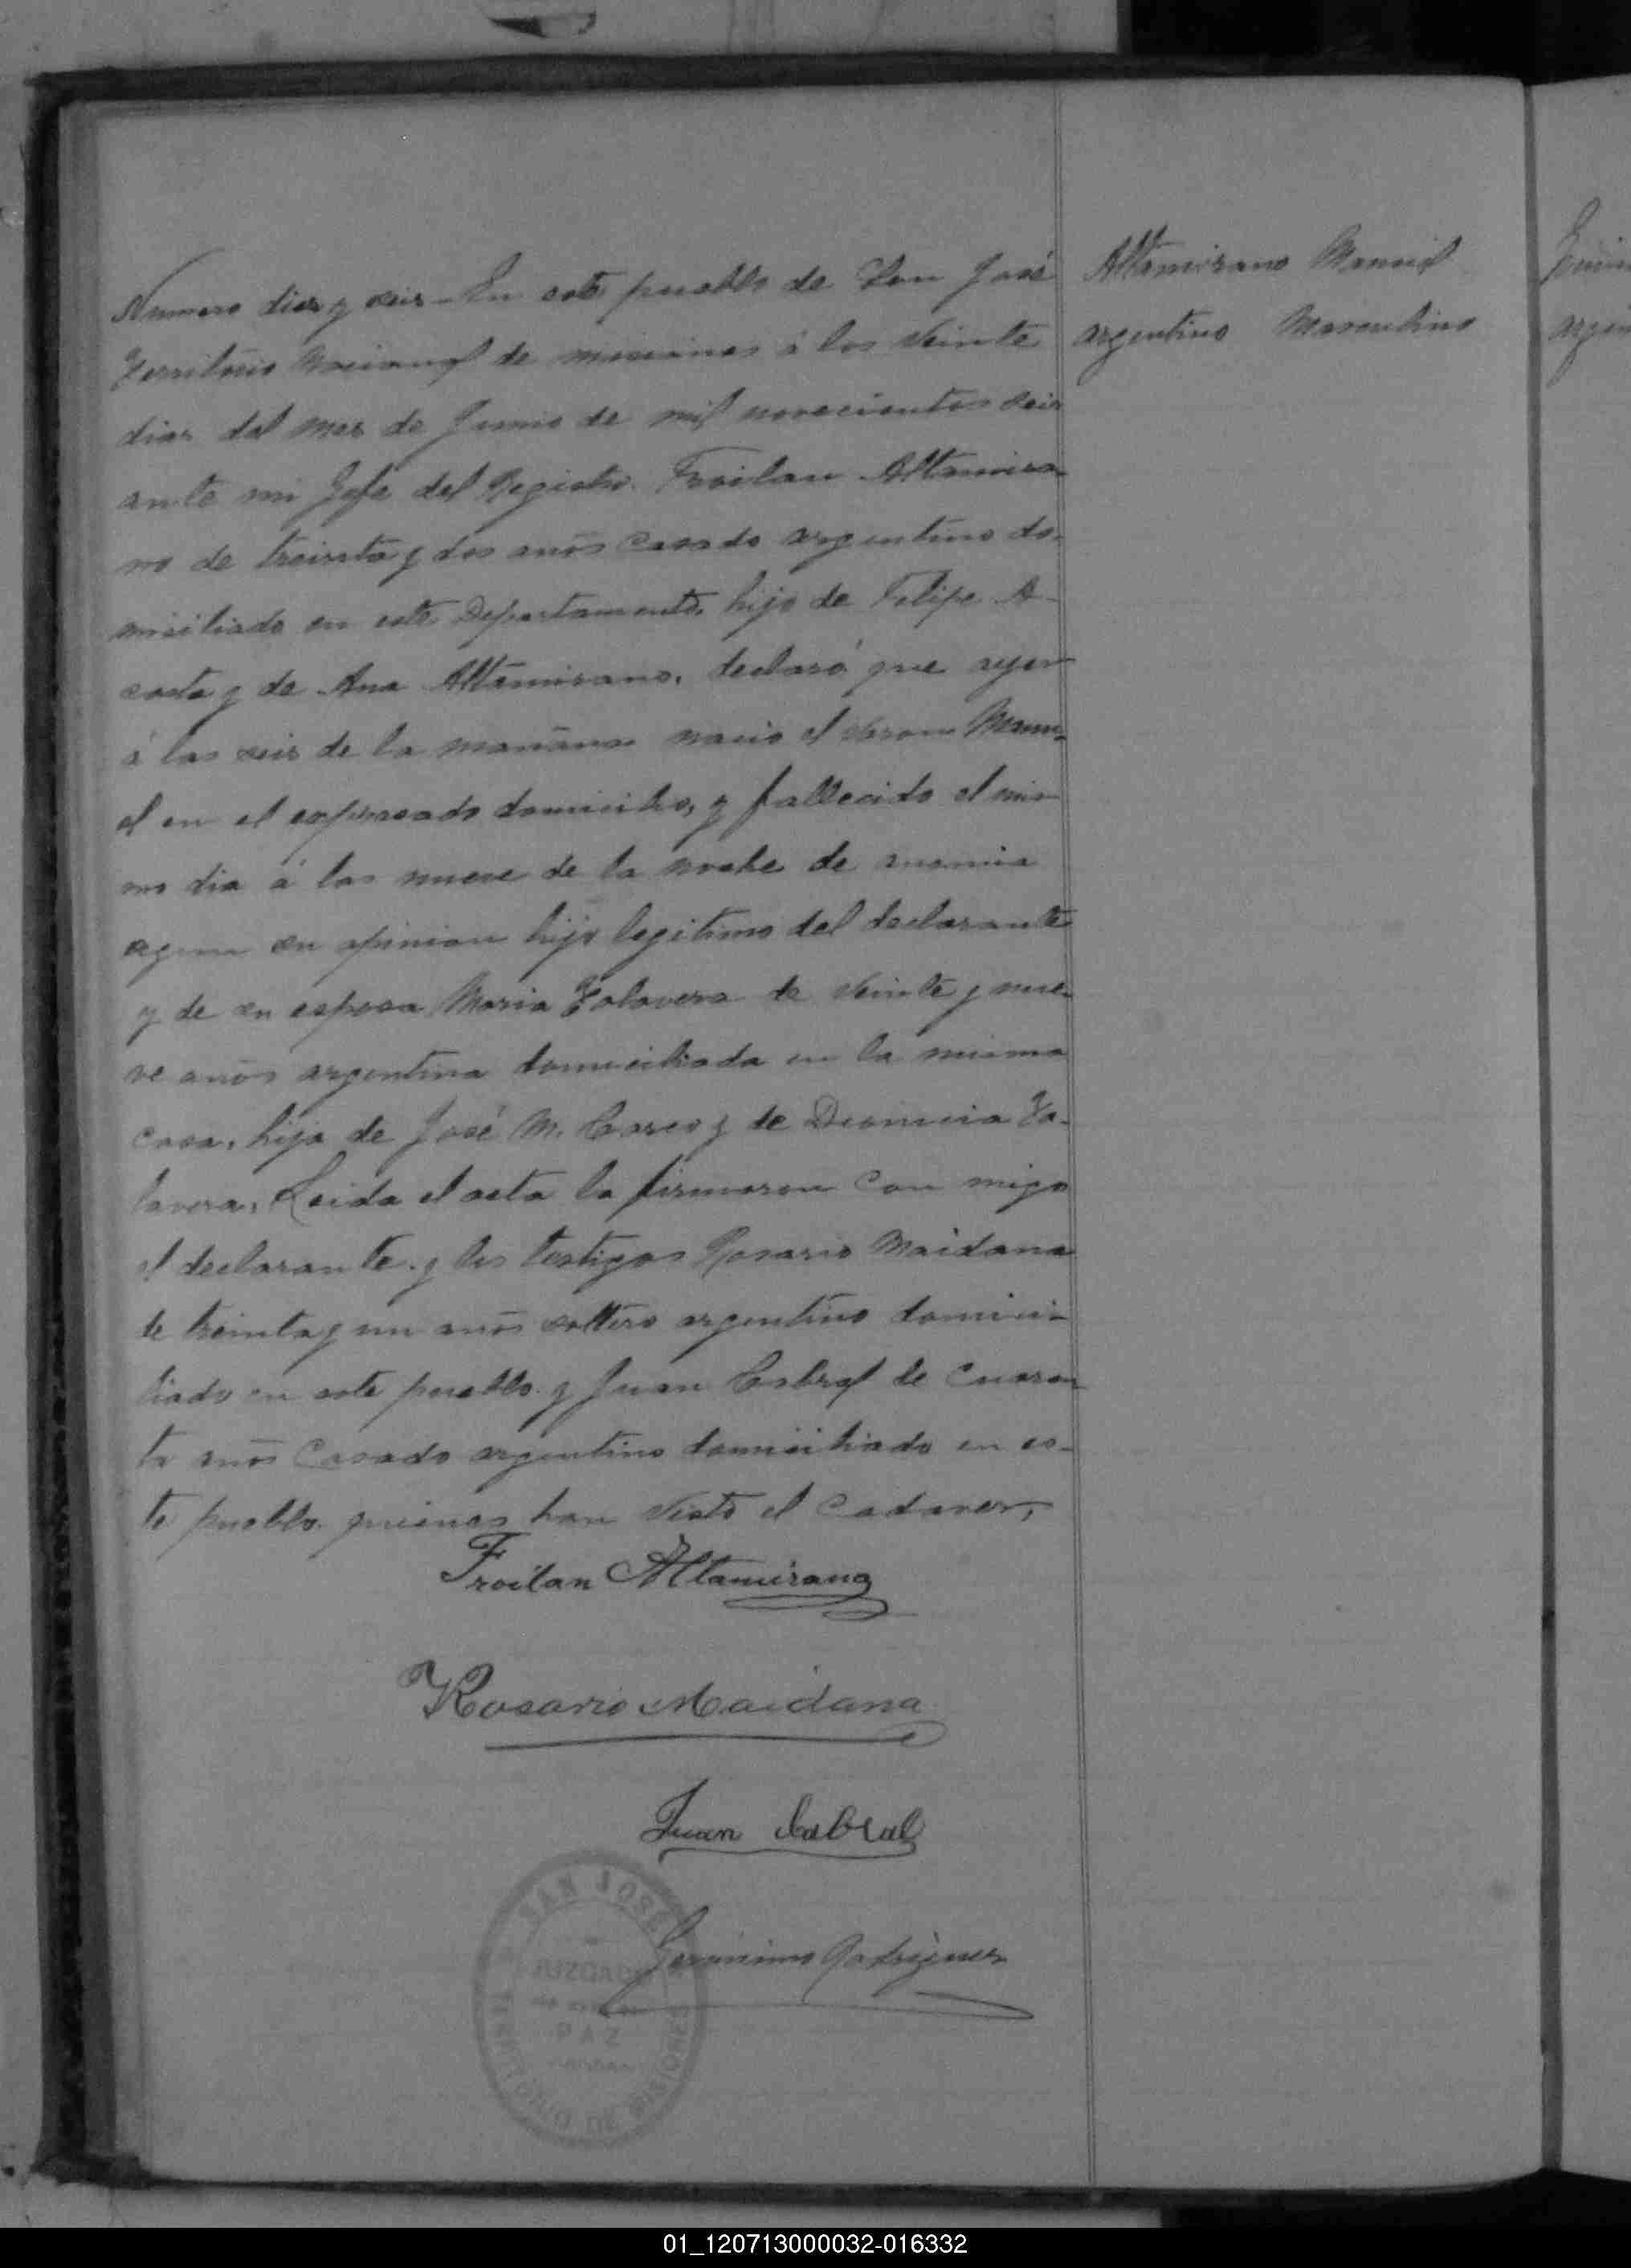 Numero diez y seis - En este pueblo de San José
Territorio Nacional de misiones á los veinte
dias del mes de Junio de mil novecientos seis
ante mi Jefe del Registro. Froilan Altamira-
no de treinta y dos años casado argentino do-
miciliado en este Departamento, hijo de Felipe A-
costa y de Ana Altamirano, declaró que ayer
á las seis de la mañana nacio el varon Manu-
el en el expresado domicilio, y fallecido el mis-
mo dia á las nueve de la noche de anemia
segun su opinion hijo legitimo del declarante
y de su esposa Maria Talavera de veinte y nue-
ve años argentina domiciliada en la misma
casa, hija de José M. y de Dionicia Ta-
lavera, Leida el acta la firmaron con migo
el declarante y los testigos Rosario Maidana
de treinta y un años soltero argentino domici-
liado en este pueblo y Juan Cabral de cuaren-
ta años casado argentino domiciliado en es-
te pueblo quienes han visto el cadaver,
Froilan Altamirano
Rosario Maidana
Juan Cabral
Geronimo Rodriguez
SAN JOSE
JUZGADO
DE
PAZ
TERRITORIO DE MISIONES
Altamirano Manuel
argentino Masculino
01_120713000032-016332